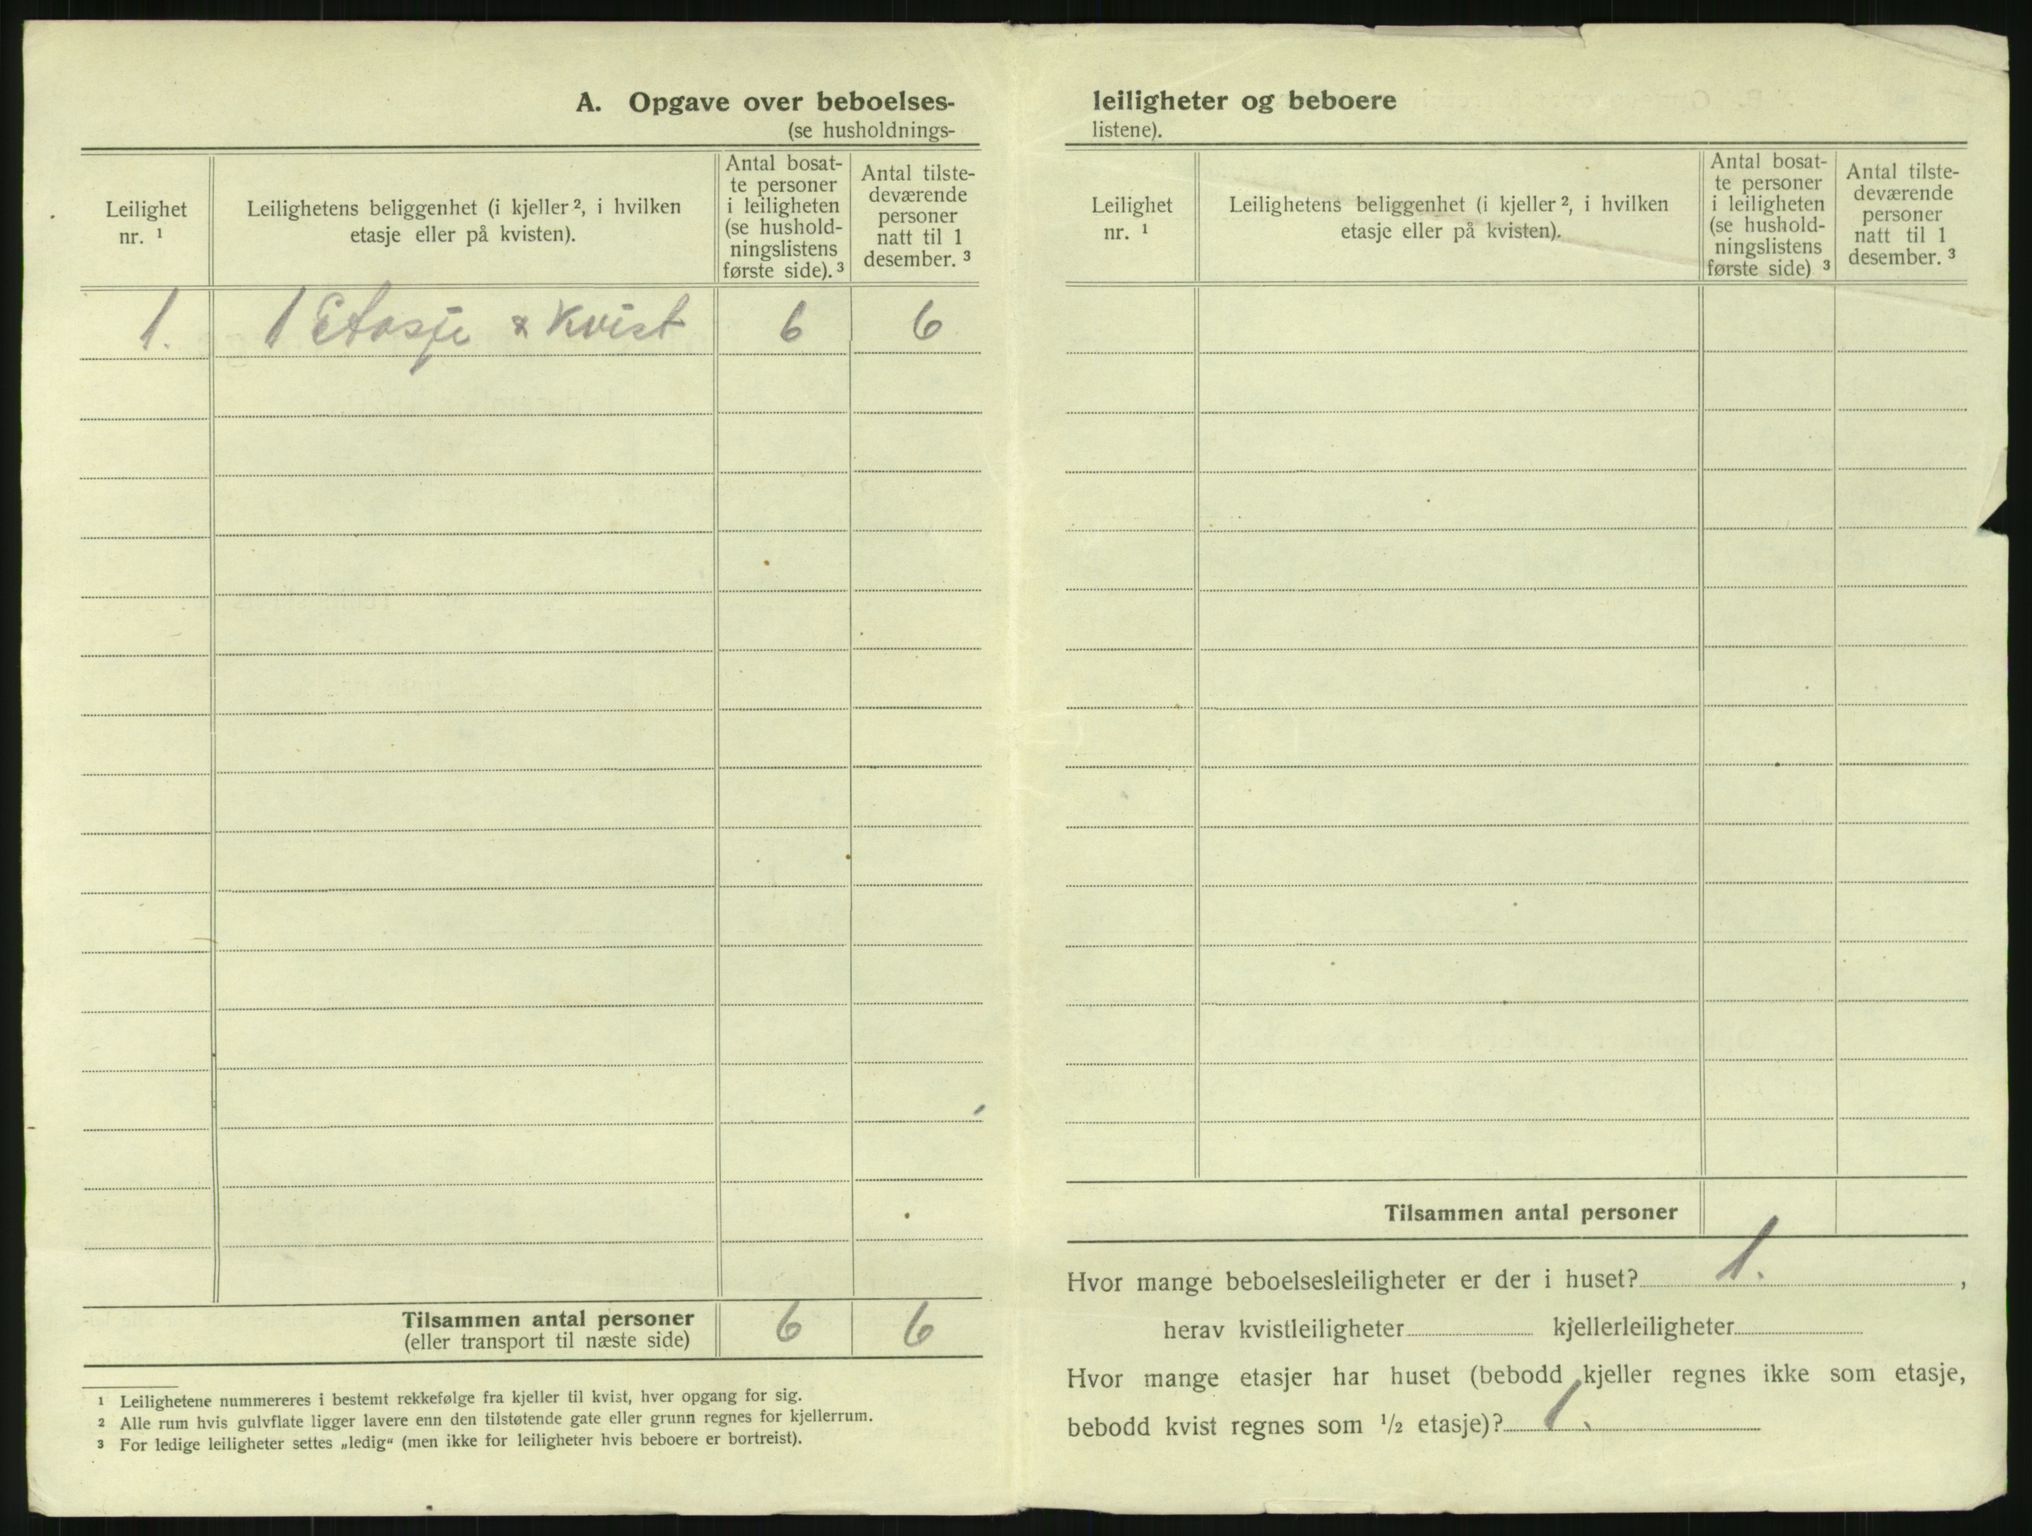 A. Opgave over beboelses-
(se husholdnings-
Leilighet
nr. ¹
Leilighetens beliggenhet (i kjeller ², i hvilken
etasje eller på kvisten).
Antal bosat-
te personer
i leiligheten
(se hushold-
ningslistens
første side). ³
Antal tilste-
deværende
personer
natt til 1
desember. ³
1. 1 Etasje & Kvist 6 6
Tilsammen antal personer 6 6
(eller transport til næste side)
¹ Leilighetene nummereres i bestemt rekkefølge fra kjeller til kvist, hver opgang for sig.
² Alle rum hvis gulvflate ligger lavere enn den tilstøtende gate eller grunn regnes for kjellerrum.
³ For ledige leiligheter settes „ledig“ (men ikke for leiligheter hvis beboere er bortreist).
leiligheter og beboere
listene).
Leilighet
nr. ¹
Leilighetens beliggenhet (i kjeller ², i hvilken
etasje eller på kvisten).
Antal bosat-
te personer
i leiligheten
(se hushold-
ningslistens
første side) ³
Antal tilste-
deværende
personer
natt til 1
desember. ³
Tilsammen antal personer
Hvor mange beboelsesleiligheter er der i huset? 1. ,
herav kvistleiligheter kjellerleiligheter
Hvor mange etasjer har huset (bebodd kjeller regnes ikke som etasje,
bebodd kvist regnes som ½ etasje)? 1.